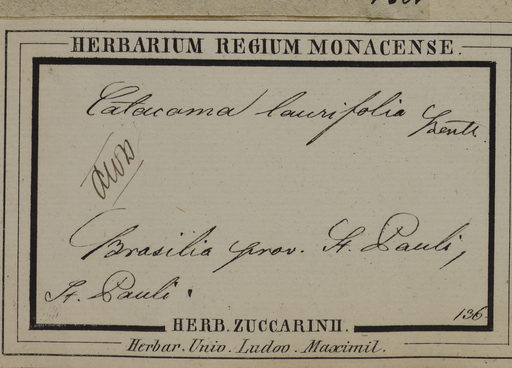 HERBARIUM REGIUM MONACENSE.
Catacoma laurifolia Benth
Brasilia prov. St. Pauli,
St. Pauli.
136
HERB. ZUCCARINII.
Herbar. Univ. Ludov. Maximil.